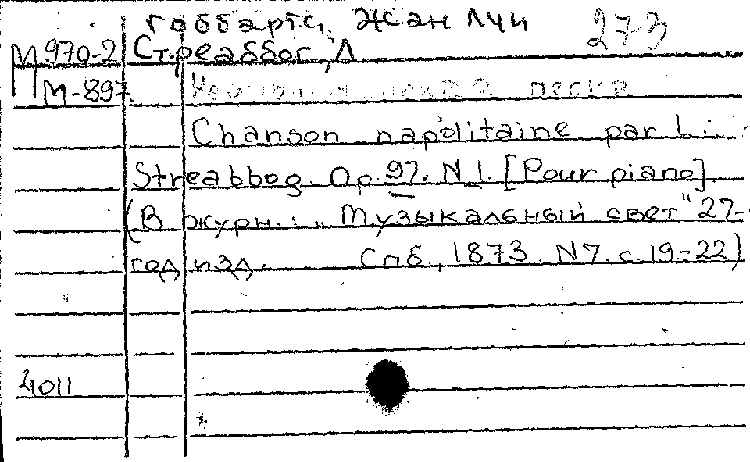 Гоббартс, Жан Луи 273
М 970-2 Стреаббог, Л
М-897 песня
Chanson napolitaine par L.
Streabbog. Op. 97. N 1. [Pour piano].
(В журн. : „Музыкальный свет" 27-
год изд. Спб, 1873. N7. с. 19-22)
4011